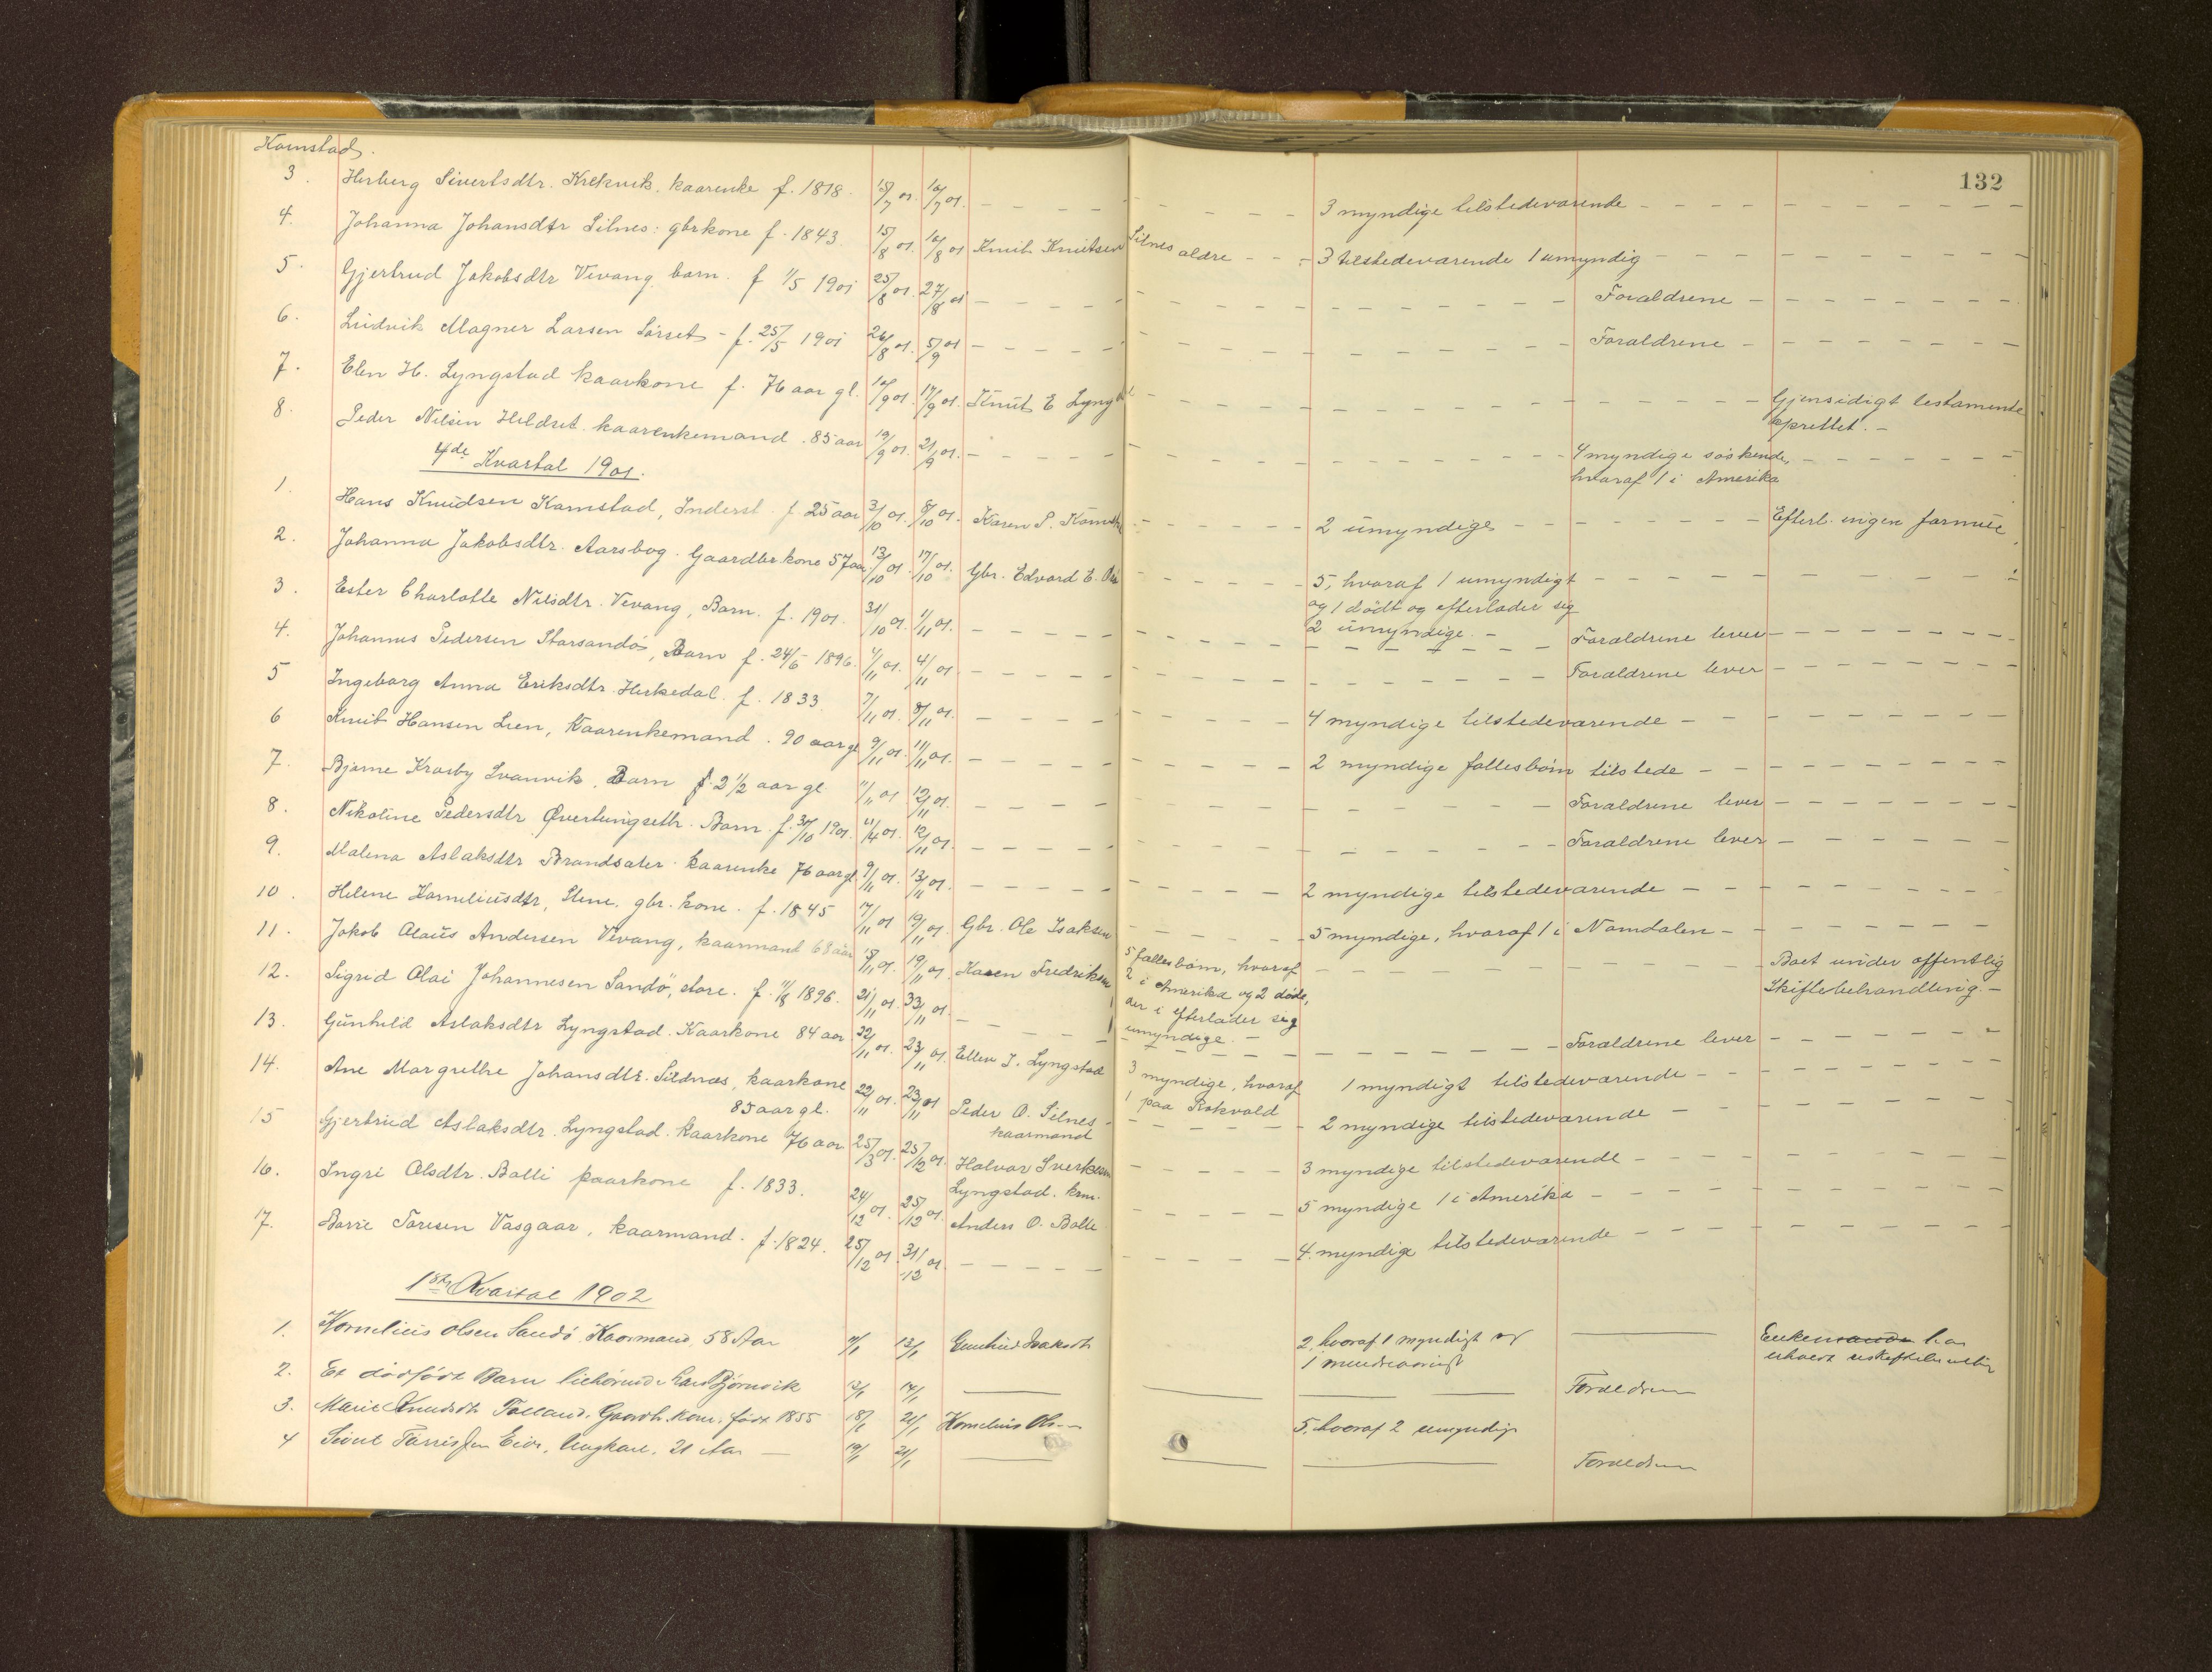 132
Kornstad.
3. Herborg Sivertsdtr. Krekvik. kaarenke f. 1818. 15/7 01. 16/7 01. 3 myndige tilstedeværende
4. Johanna Johansdtr Silnes: gbrkone f. 1843. 15/8 01. 16/8 01 Knut Knutsen Silnes ældre 3 tilstedeværende 1 umyndig
5. Gjertrud Jakobsdtr Vevang barn. f 1/5 1901 25/8 01. 27/8 01 Forældrene
6. Ludvik Magner Larsen Sörset - f. 25/5 1901 26/8 01. 5/9 01 Forældrene
7. Elen H. Lyngstad kaarkone f. 76 aar gl. 16/9 01. 17/9 01. Knut E Lyngst Gjensidigt testamente
oprettet. -
8. Peder Nilsen Hildset. kaarenkemand. 85 aar 19/9 01. 21/9 01. 4 myndige söskende,
hvoraf 1 i Amerika
4de Kvartal 1901.
1. Hans Knudsen Kornstad, Inderst. f. 25 aar 3/10 01. 8/10 01. Karen P. Kornsta 2 umyndige Efterl. ingen formue
2. Johanna Jakobsdtr. Aarsbog. Gaardbrkone 57 aar 13/10 01. 17/10 01. Gbr. Edvard E. 5, hvoraf 1 umyndigt
og 1 dödt og efterlader sig
2 umyndige. -
3. Ester Charlotte Nilsdtr. Vevang, Barn. f. 1901. 31/10 01. 1/11 01. Forældrene lever
4. Johannes Pedersen Storsandö, Barn f. 24/6 1896. 4/11 01. 4/11 01 Forældrene lever
5 Ingeborg Anna Eriksdtr. Hestkedal. f. 1833. 7/11 01. 8/11 01. 4 myndige tilstedeværende
6 Knut Hansen Lien, Kaarenkemand. 90 aar gl 9/11 01. 11/11 01. 2 myndige fællesbörn tilstede
7. Bjarne Kraaby Svanvik, Barn f. 2 1/2 aar gl. 11/11 01 12/11 01. Forældrene lever
8. Nikoline Pedersdtr Øvertungseth. Barn. f. 30/10 1901. 11/11 01. 12/11 01. Forældrene lever
9. Malena Aslaksdtr Brandsæter. kaarenke 76 aar gl. 9/11 01. 13/11 01. 2 myndige tilstedeværende
10. Helene Korneliusdtr, Stene. gbr. kone. f. 1845 17/11 01 19/11 01. Gbr. Ole Isaksen 5 myndige, hvoraf 1 i Namdalen
11. Jakob Olaus Andersen Vevang, kaarmand 68 aar 18/11 01. 19/11 01. Karen Fredriksen 5 fællesbörn, hvoraf
2 i Amerika og 2 döde,
der i efterlader sig
umyndige. - Boet under offentlig
Skiftebehandling. -
12. Sigrid Olai Johannesen Sandö, store. f. 11/8 1896. 21/11 01. 33/11 01. Forældrene lever
13. Gunhild Aslaksdtr Lyngstad. Kaarkone 84 aar 22/11 01. 23/11 01. Ellev I. Lyngstad 3 myndige, hvoraf 1 myndigt tilstedeværende
1 paa Rokvold
14. Ane Margrethe Johansdtr. Sildnæs, kaarkone
85 aar gl. 22/11 01. 23/11 01 Peder O. Silnes -
kaarmand 2 myndige tilstedeværende
15 Gjertrud Aslaksdtr. Lyngstad. Kaarkone 76 aar 25/3 01. 25/12 01. Halvor Sverkesen
Lyngstad. krm. 3 myndige tilstedeværende
16. Ingri Olsdtr. Bolli kaarkone f. 1833. 24/12 01. 25/12 01. Anders O. Bolle 5 myndige 1 i Amerika
17. Børre Toresen Vasgaar, kaarmand. f. 1824. 25/12 01 31/12 01. 4. myndige tilstedeværende
1ste Kvartal 1902
1. Kornelius Olsen Sandö Kaarmand, 58 Aar 12/1 2, hvoraf 1 myndigt og
1 mindreaarigt har
2. Et dödfödt Barn Bjørnvik 14/1 Forældrene
3. Marie Knudsdtr Gaardb. kone, född 1855 18/1 21/1 Kornelius Ols 5, hvoraf 2 umyndige
4 Sivert Ungkarl, 21 Aar 19/1 21/1 Forældrene